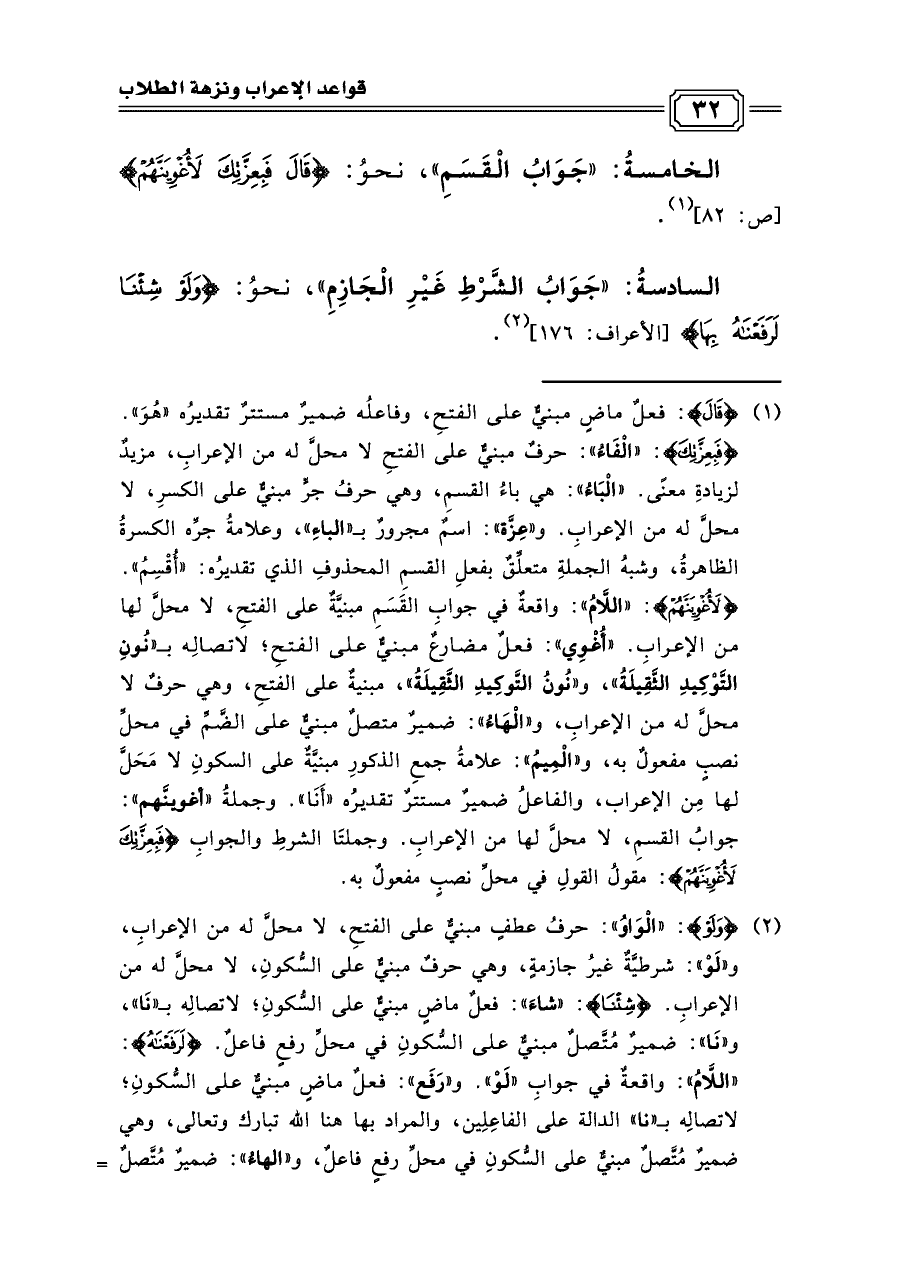 قواعد الإعراب ونزهة الطلاب
٣٢
الخامسةُ: «جَوَابُ الْقَسَمِ»، نحوُ: ﴿قَالَ فَبِعِزَّتِكَ لَأُغْوِيَنَّهُمْ﴾
[ص: ٨٢](١).
السادسةُ: «جَوَابُ الشَّرْطِ غَيْرِ الْجَازِمِ»، نحوُ: ﴿وَلَوْ شِئْنَا
لَرَفَعْنَاهُ بِهَا﴾ [الأعراف: ١٧٦](٢).
(١) ﴿قَالَ﴾: فعلٌ ماضٍ مبنيٌّ على الفتحِ، وفاعلُه ضميرٌ مستترٌ تقديرُه «هُوَ».
﴿فَبِعِزَّتِكَ﴾: «الْفَاءُ»: حرفٌ مبنيٌّ على الفتحِ لا محلَّ له من الإعرابِ، مزيدٌ
لزيادةِ معنًى. «الْبَاءُ»: هي باءُ القسمِ، وهي حرفُ جرٍّ مبنيٌّ على الكسرِ، لا
محلَّ له من الإعرابِ. و«عِزَّة»: اسمٌ مجرورٌ بـ«الباءِ»، وعلامةُ جرِّه الكسرةُ
الظاهرةُ، وشبهُ الجملةِ متعلِّقٌ بفعلِ القسمِ المحذوفِ الذي تقديرُه: «أُقْسِمُ».
﴿لَأُغْوِيَنَّهُمْ﴾: «اللَّامُ»: واقعةٌ في جوابِ القَسَمِ مبنيَّةٌ على الفتحِ، لا محلَّ لها
من الإعرابِ. «أُغْوِي»: فعلٌ مضارعٌ مبنيٌّ على الفتحِ؛ لاتصالِه بـ«نُونِ
التَّوْكِيدِ الثَّقِيلَةُ»، و«نُونُ التَّوكِيدِ الثَّقِيلَةُ»، مبنيةٌ على الفتحِ، وهي حرفٌ لا
محلَّ له من الإعرابِ، و«الْهَاءُ»: ضميرٌ متصلٌ مبنيٌّ على الضَّمِّ في محلِّ
نصبٍ مفعولٌ به، و«الْمِيمُ»: علامةُ جمعِ الذكورِ مبنيَّةٌ على السكونِ لا مَحَلَّ
لها مِن الإعراب، والفاعلُ ضميرٌ مستترٌ تقديرُه «أَنَا». وجملةُ «أغوينَّهم»:
جوابُ القسمِ، لا محلَّ لها من الإعرابِ. وجملتَا الشرطِ والجوابِ ﴿فَبِعِزَّتِكَ
لَأُغْوِيَنَّهُمْ﴾: مقولُ القولِ في محلِّ نصبٍ مفعولٌ به.
(٢) ﴿وَلَوْ﴾: «الْوَاوُ»: حرفُ عطفٍ مبنيٌّ على الفتحِ، لا محلَّ له من الإعرابِ،
و«لَوْ»: شرطيَّةٌ غيرُ جازمةٍ، وهي حرفٌ مبنيٌّ على السُّكونِ، لا محلَّ له من
الإعرابِ. ﴿شِئْنَا﴾: «شاءَ»: فعلٌ ماضٍ مبنيٌّ على السُّكونِ؛ لاتصالِه بـ«نَا»،
و«نَا»: ضميرٌ مُتَّصلٌ مبنيٌّ على السُّكونِ في محلِّ رفعٍ فاعلٌ. ﴿لَرَفَعْنَاهُ﴾:
«اللَّامُ»: واقعةٌ في جوابِ «لَوْ». و«رَفَع»: فعلٌ ماضٍ مبنيٌّ على السُّكونِ؛
لاتصالِه بـ«نا» الدالة على الفاعلِين، والمراد بها هنا الله تبارك وتعالى، وهي
ضميرٌ مُتَّصلٌ مبنيٌّ على السُّكونِ في محلِّ رفعٍ فاعلٌ، و«الهاءُ»: ضميرٌ مُتَّصلٌ =